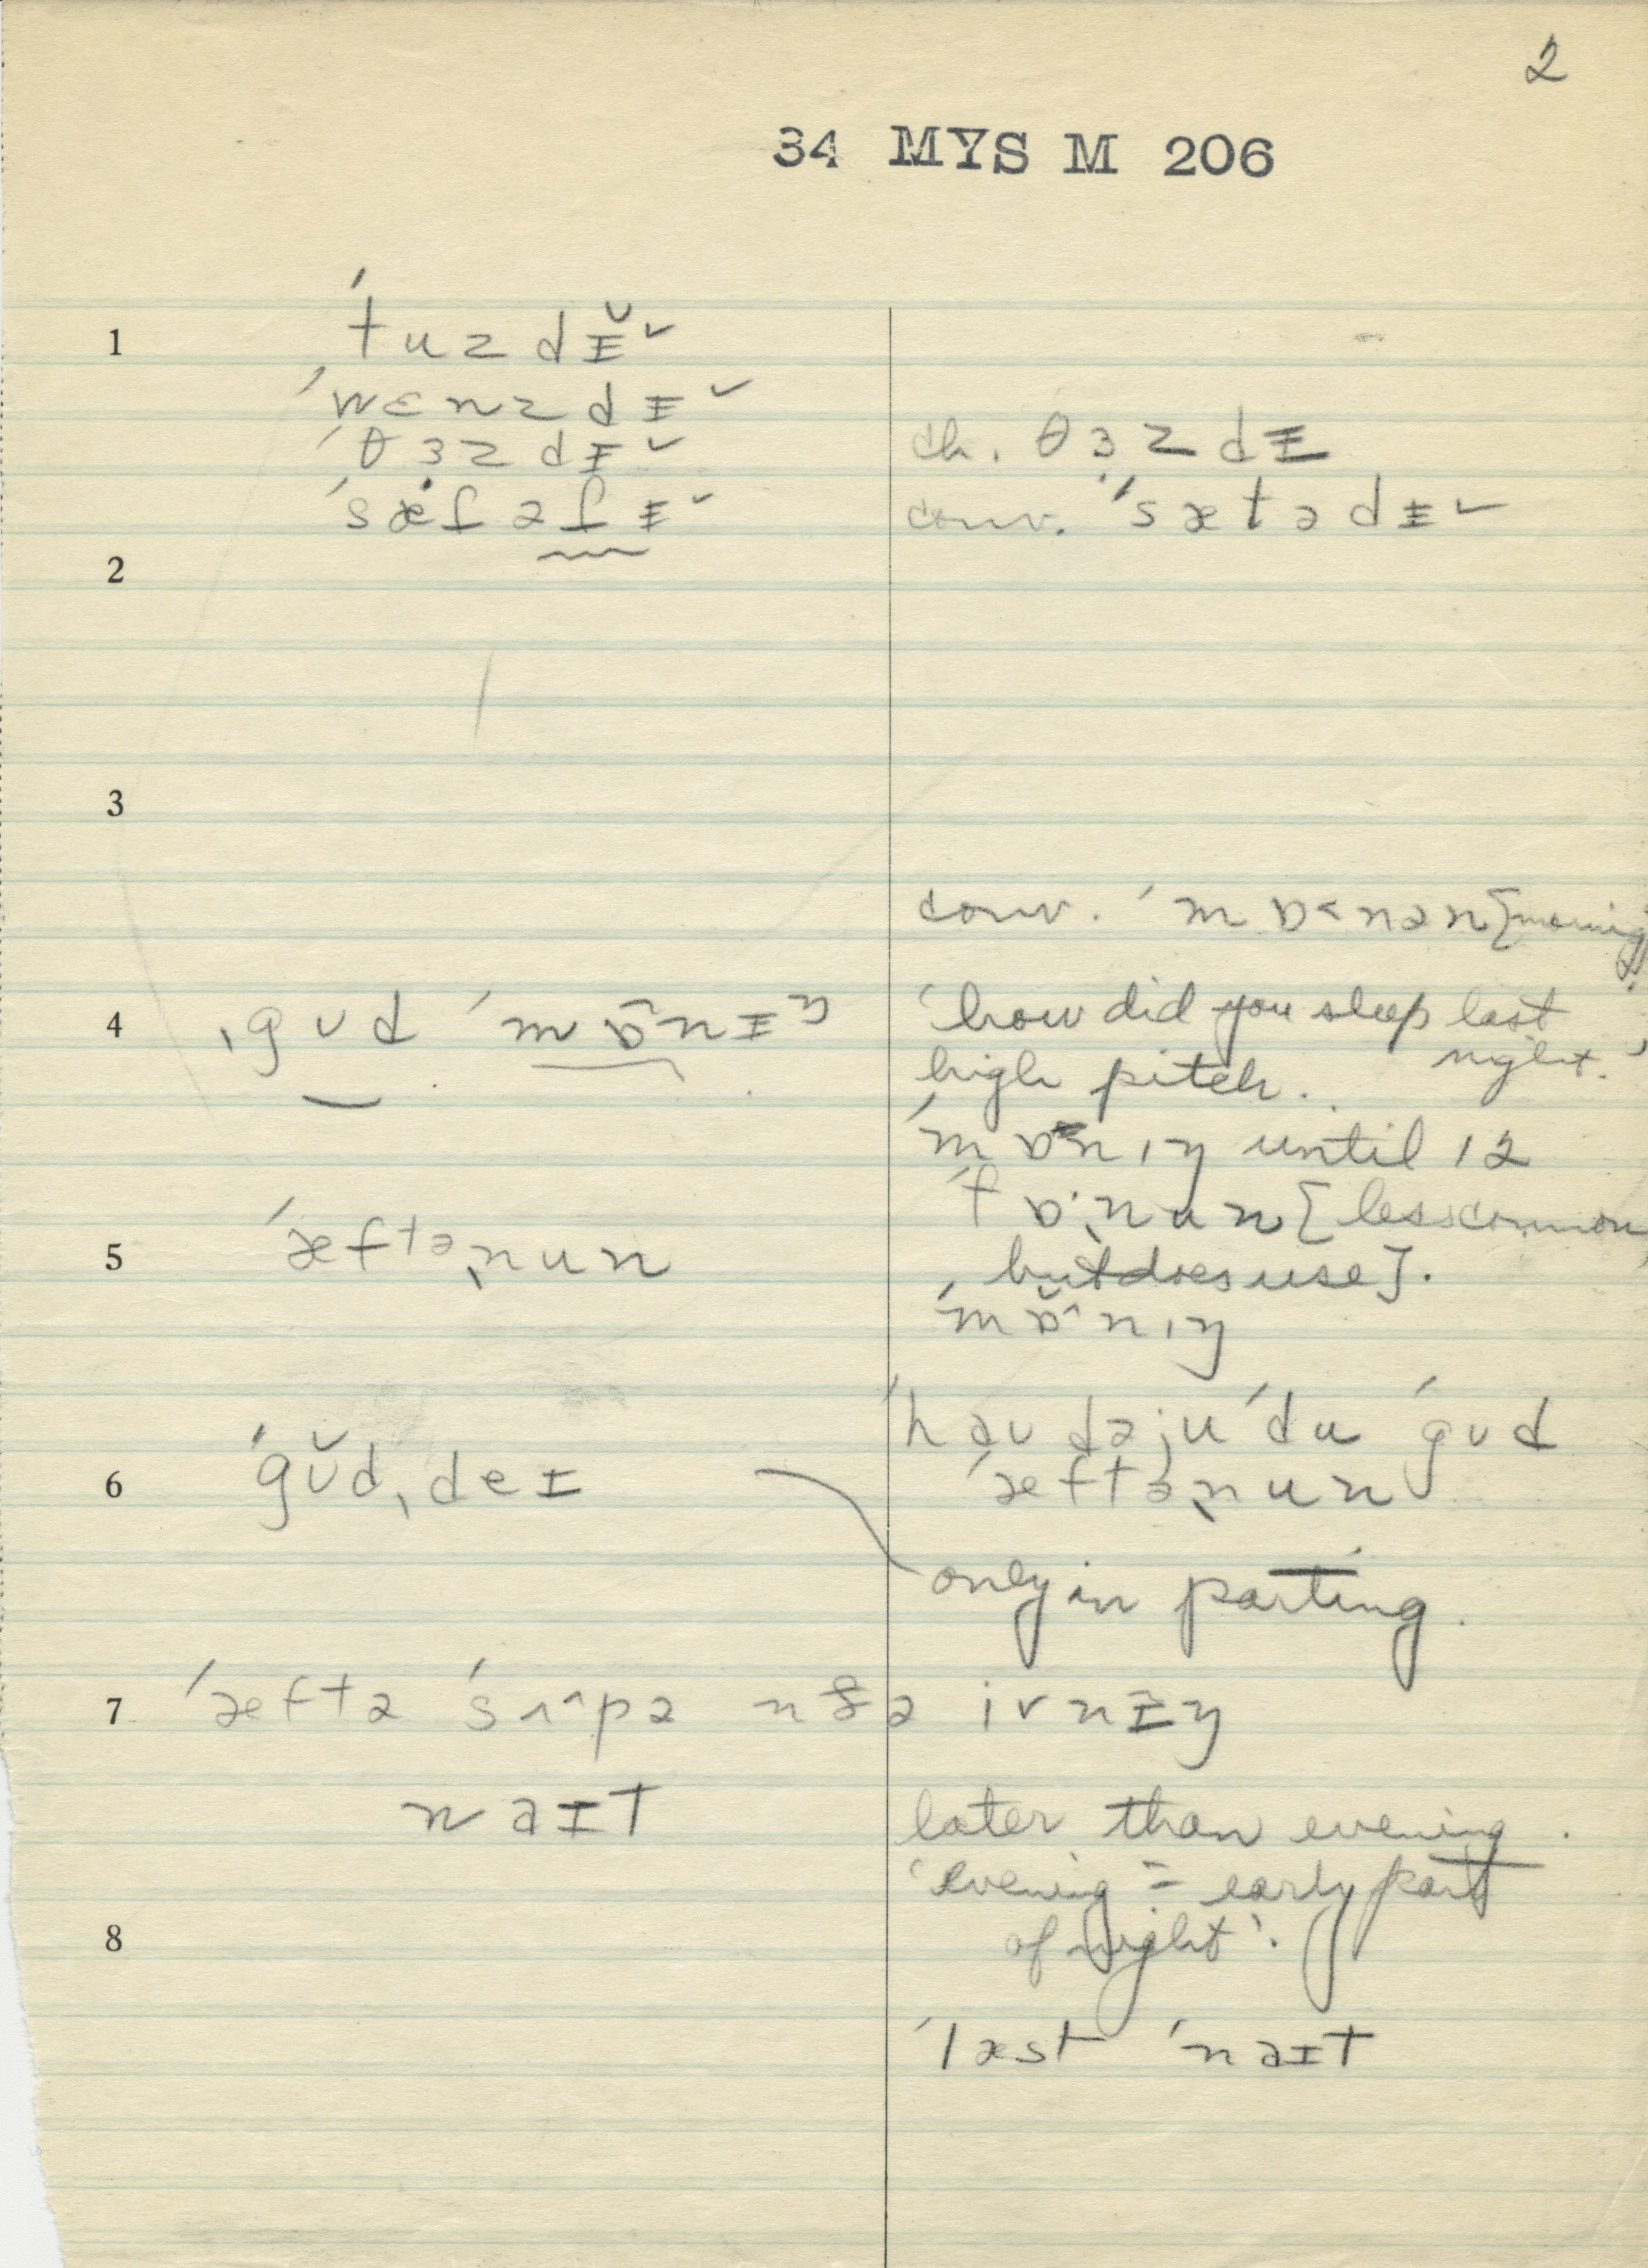 2
34 MYS M 206
1
ˈtuzdɪ̵̆˅
ˈwɛnzdɪ̵˅
ˈθɜzdɪ̵˅
ch. θɜzdɪ̵
ˈsæt̬ət̬ɪ̵˅
conv. ˈsætədɪ̵˅
2
3
conv. ˈmɒ˂nən [morning]
4 ˌgʊd ˈmɒ̂nɪ̵ŋ
'how did you sleep last night.'
high pitch.
ˈmɒnɪŋ until 12
5 ˈæftəˌnun
ˈfɒˌnun [less common,
but does use].
ˈmɒ̆ˆnɪŋ
6 ˈgʊ̆dˌdeɪ
ˈhaʊdəjuˈdu ˈgʊd
ˈæftəˌnun
only in parting.
7 ˈæftə ˈsʌˆpə n ðə ivnɪ̵ŋ
naɪt
later than evening.
'evening = early part
8
of night'.
ˈlæst ˈnaɪt